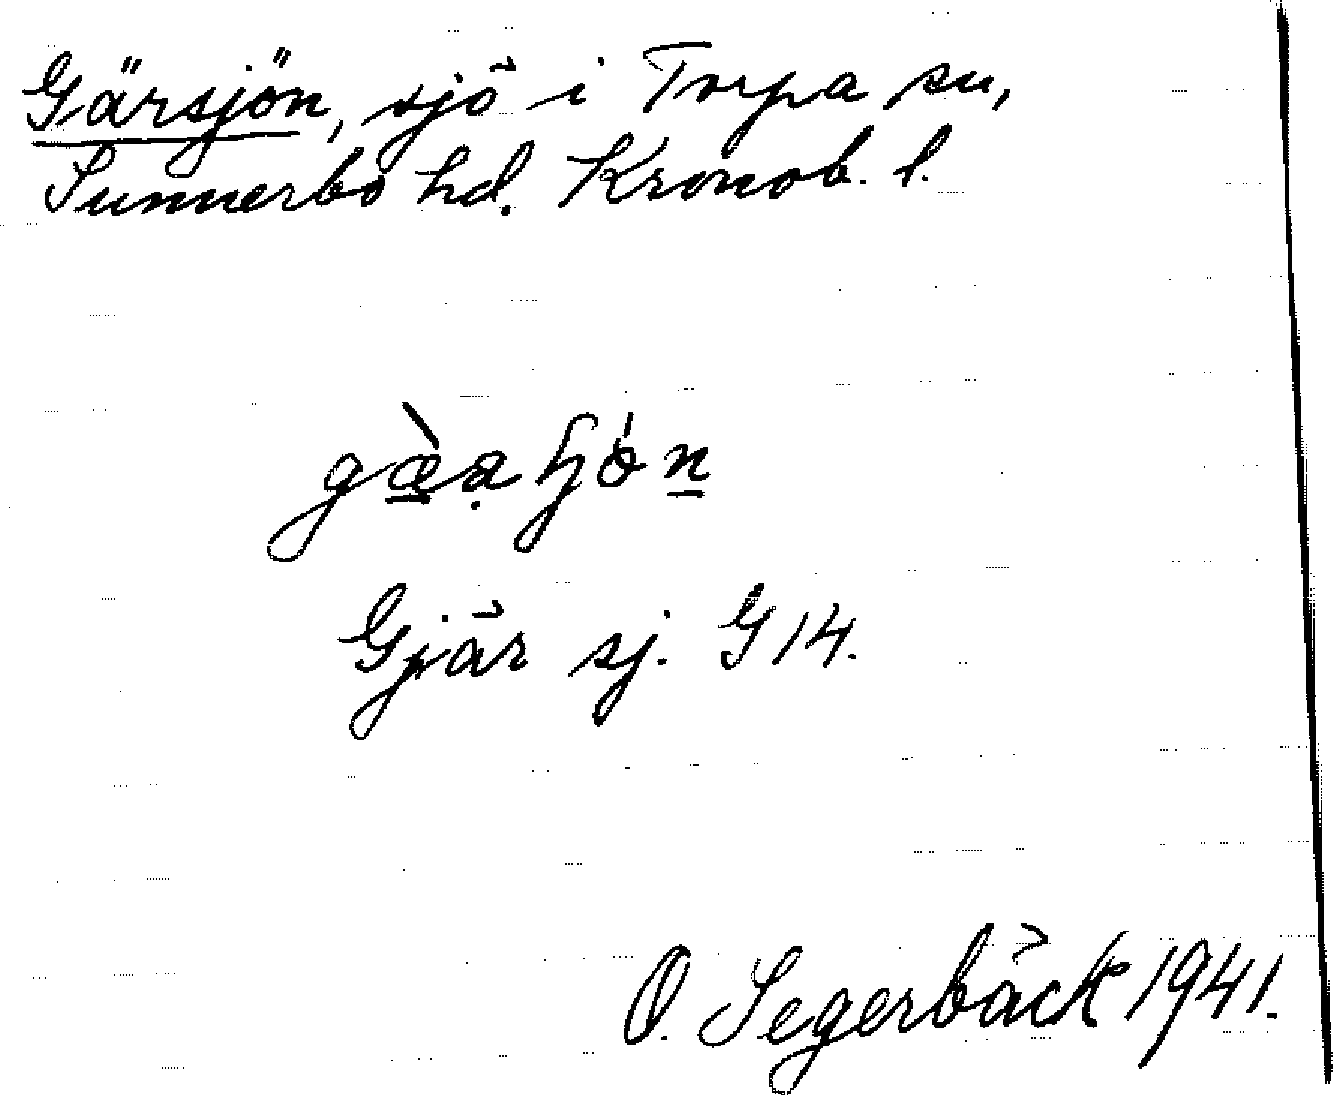 Gärsjön, sjö i Torpa sn,
Sunnerbo hd. Kronob. l.
Gjär sj. G 14.
O. Segerbäck 1941.